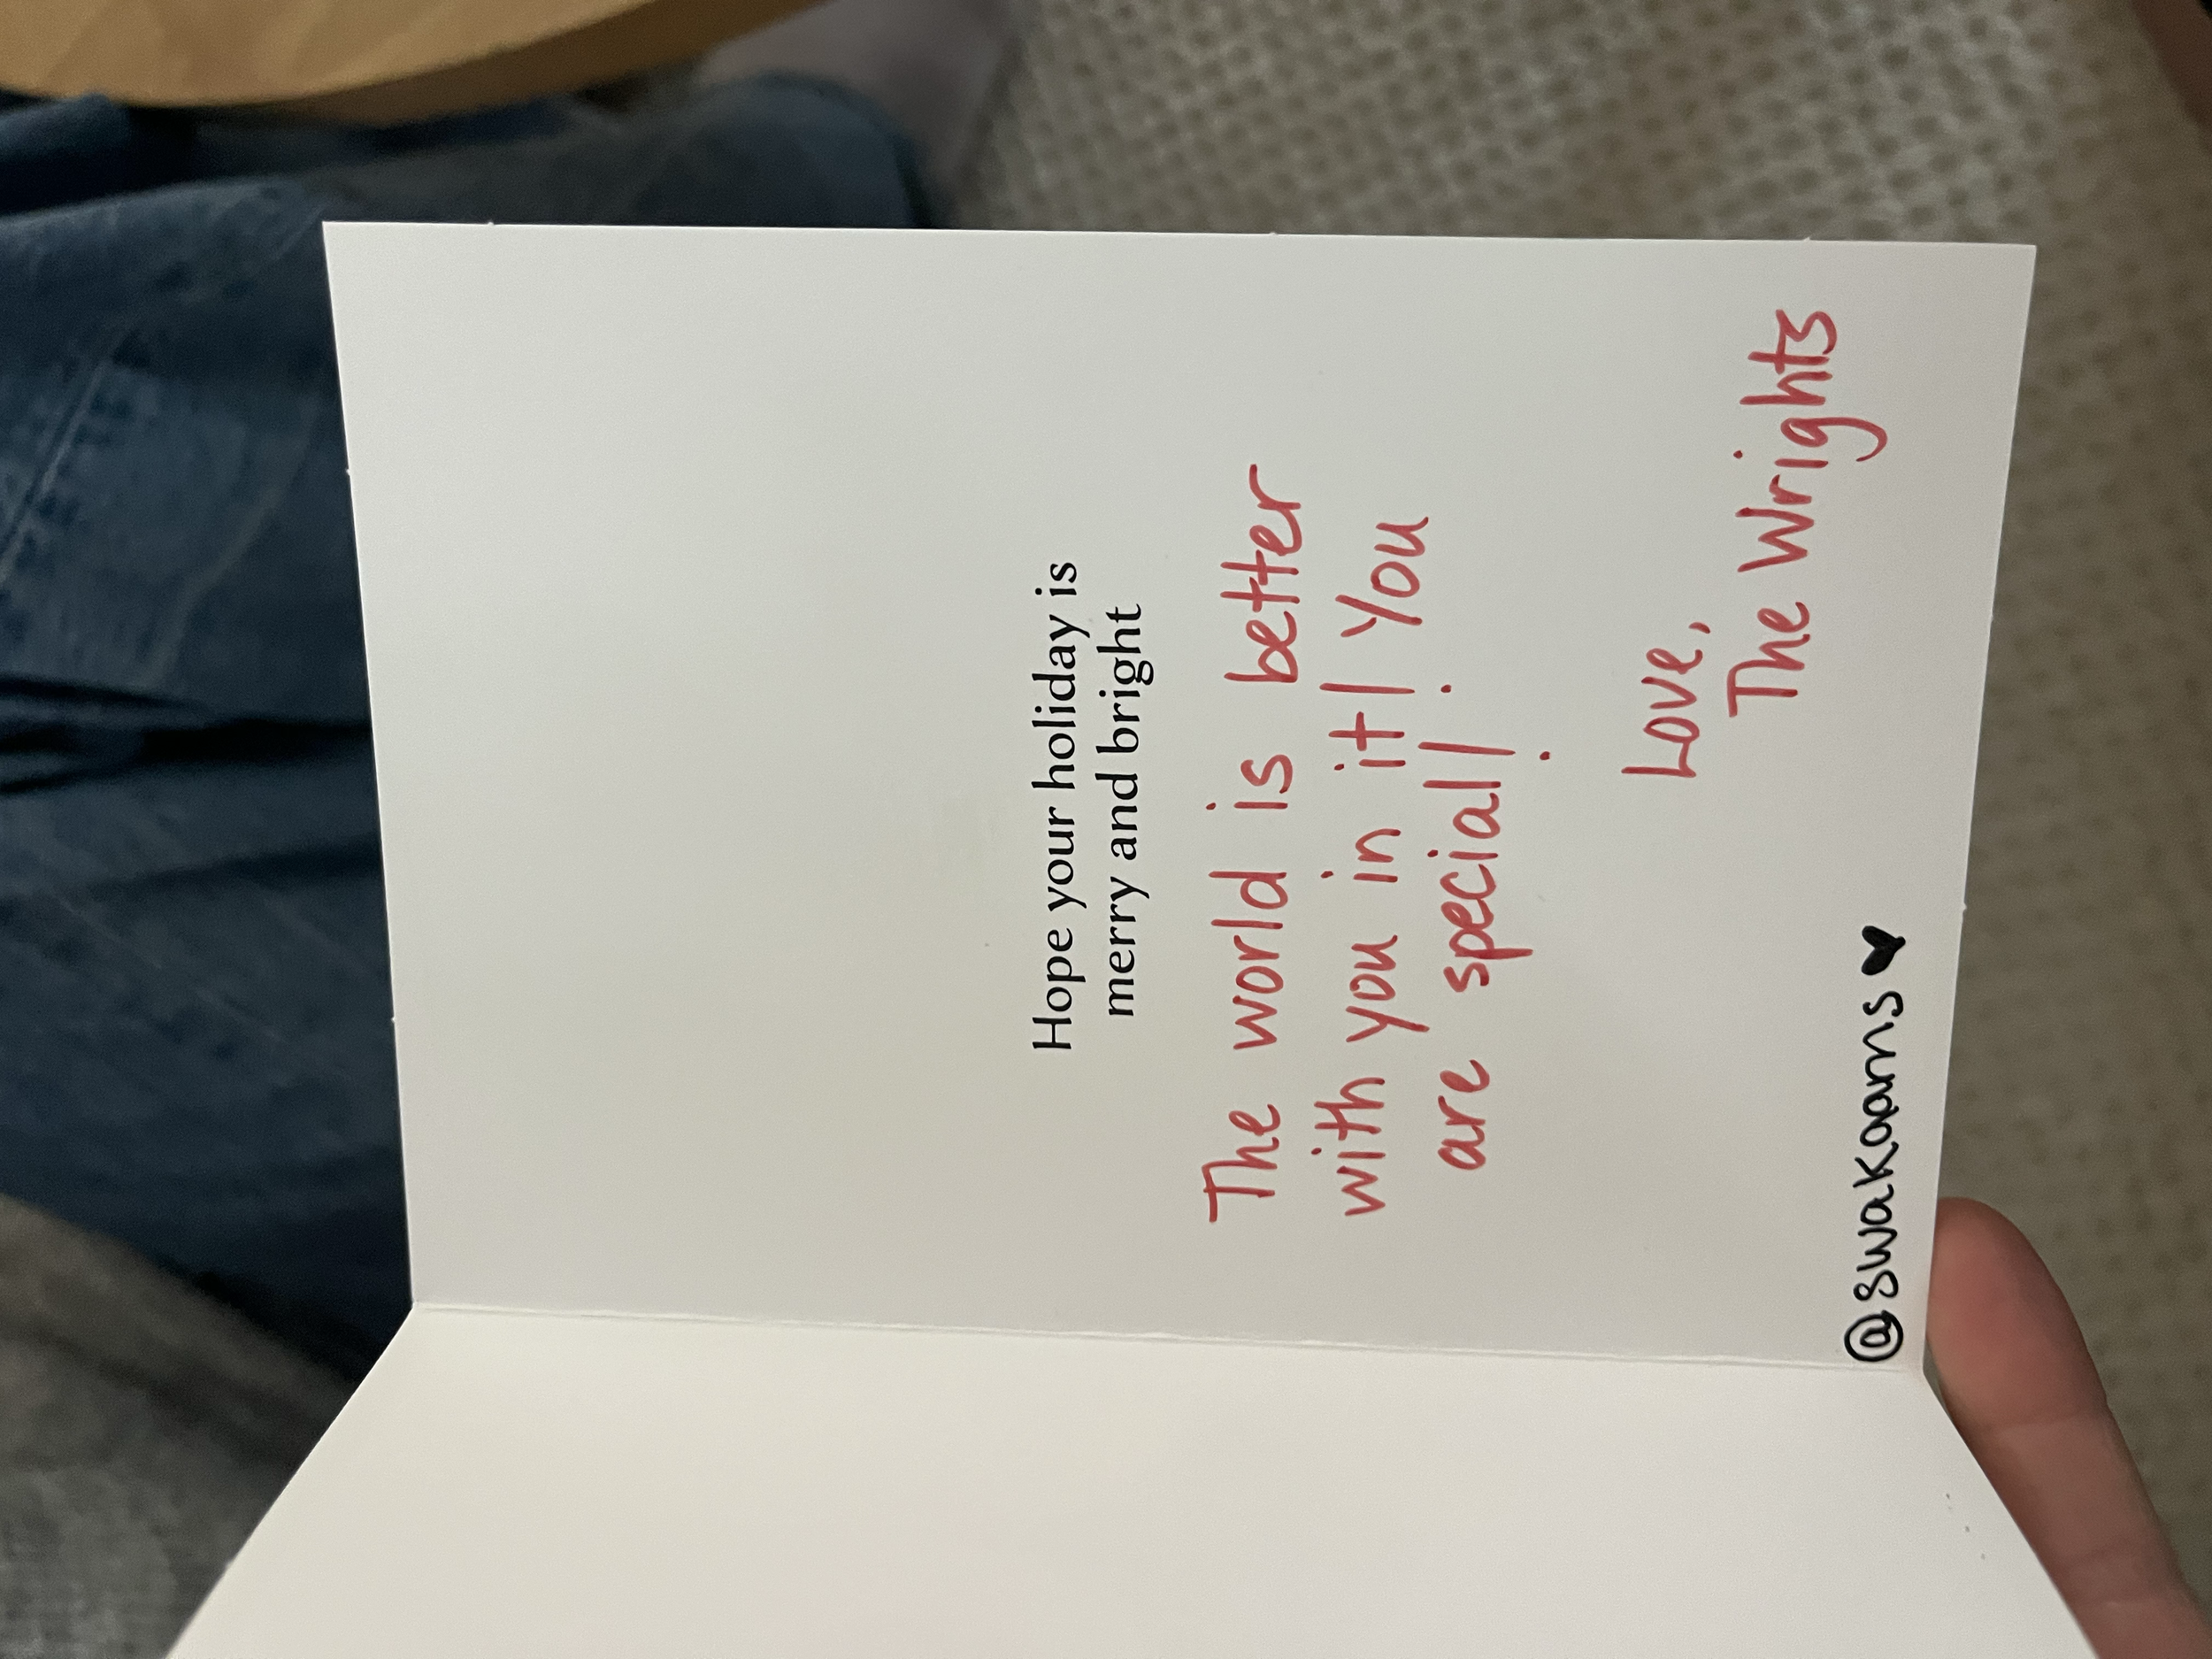 Hope your holiday is
merry and bright
The world is better
with you in it! You
are special!
Love,
The Wrights
@swakoams ♥